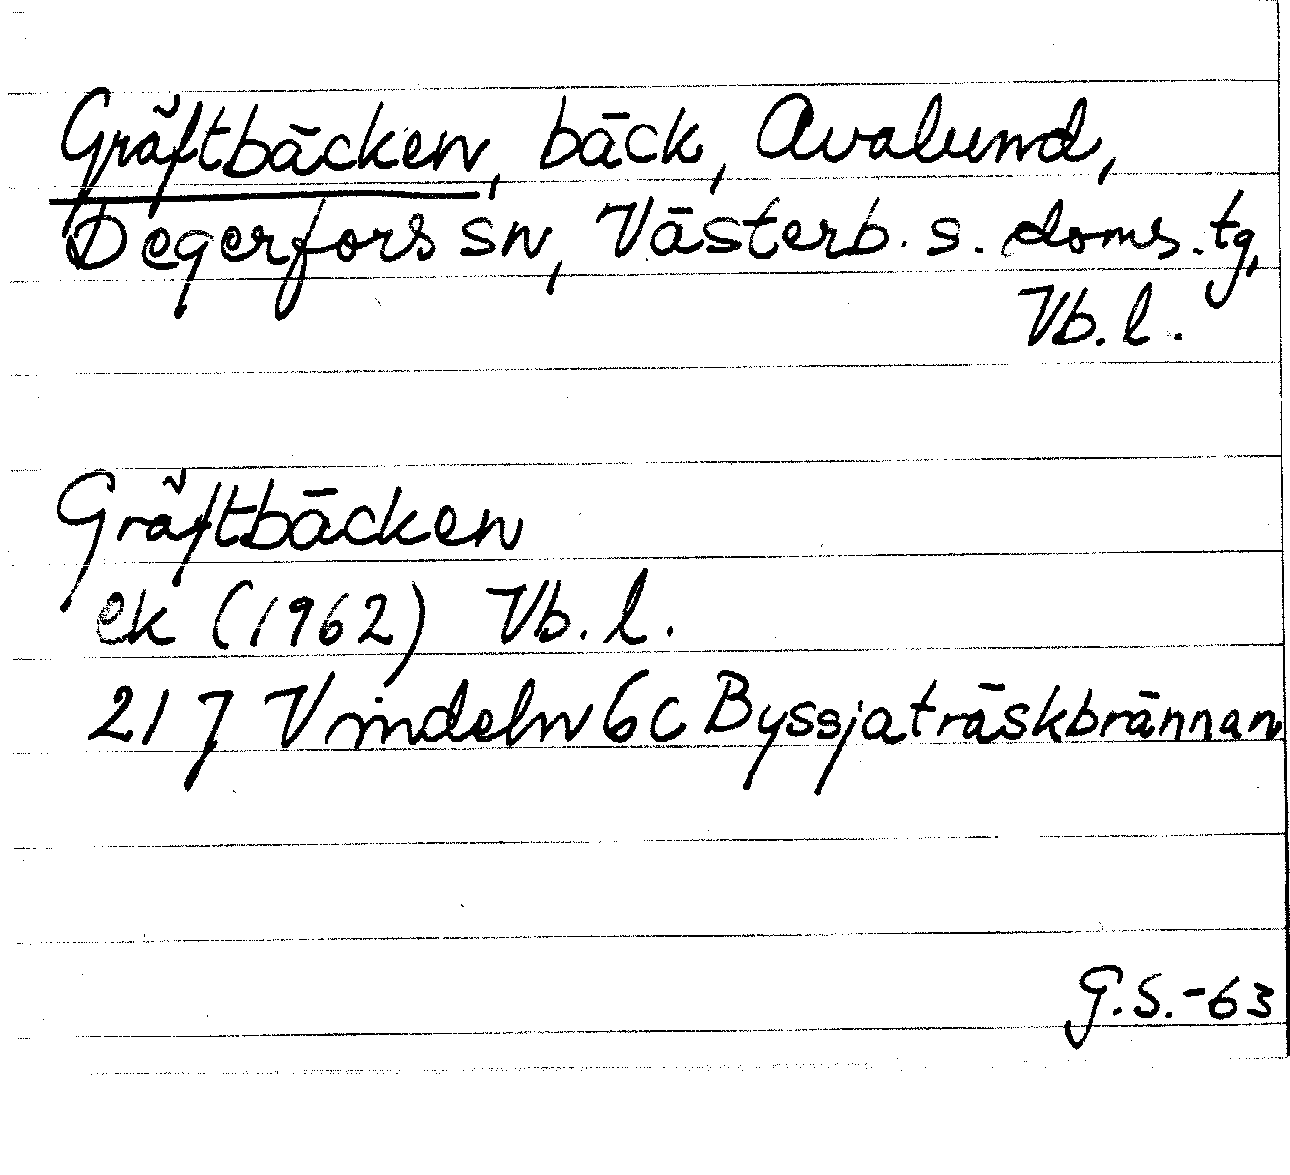 Gräftbäcken, bäck, Avalund,
Degerfors sn, Västerb. s. doms. tg,
Vb. l.
Gräftbäcken
ek (1962) Vb. l.
217 Vindeln 6c Byssjaträskbrännan
G.S.-63